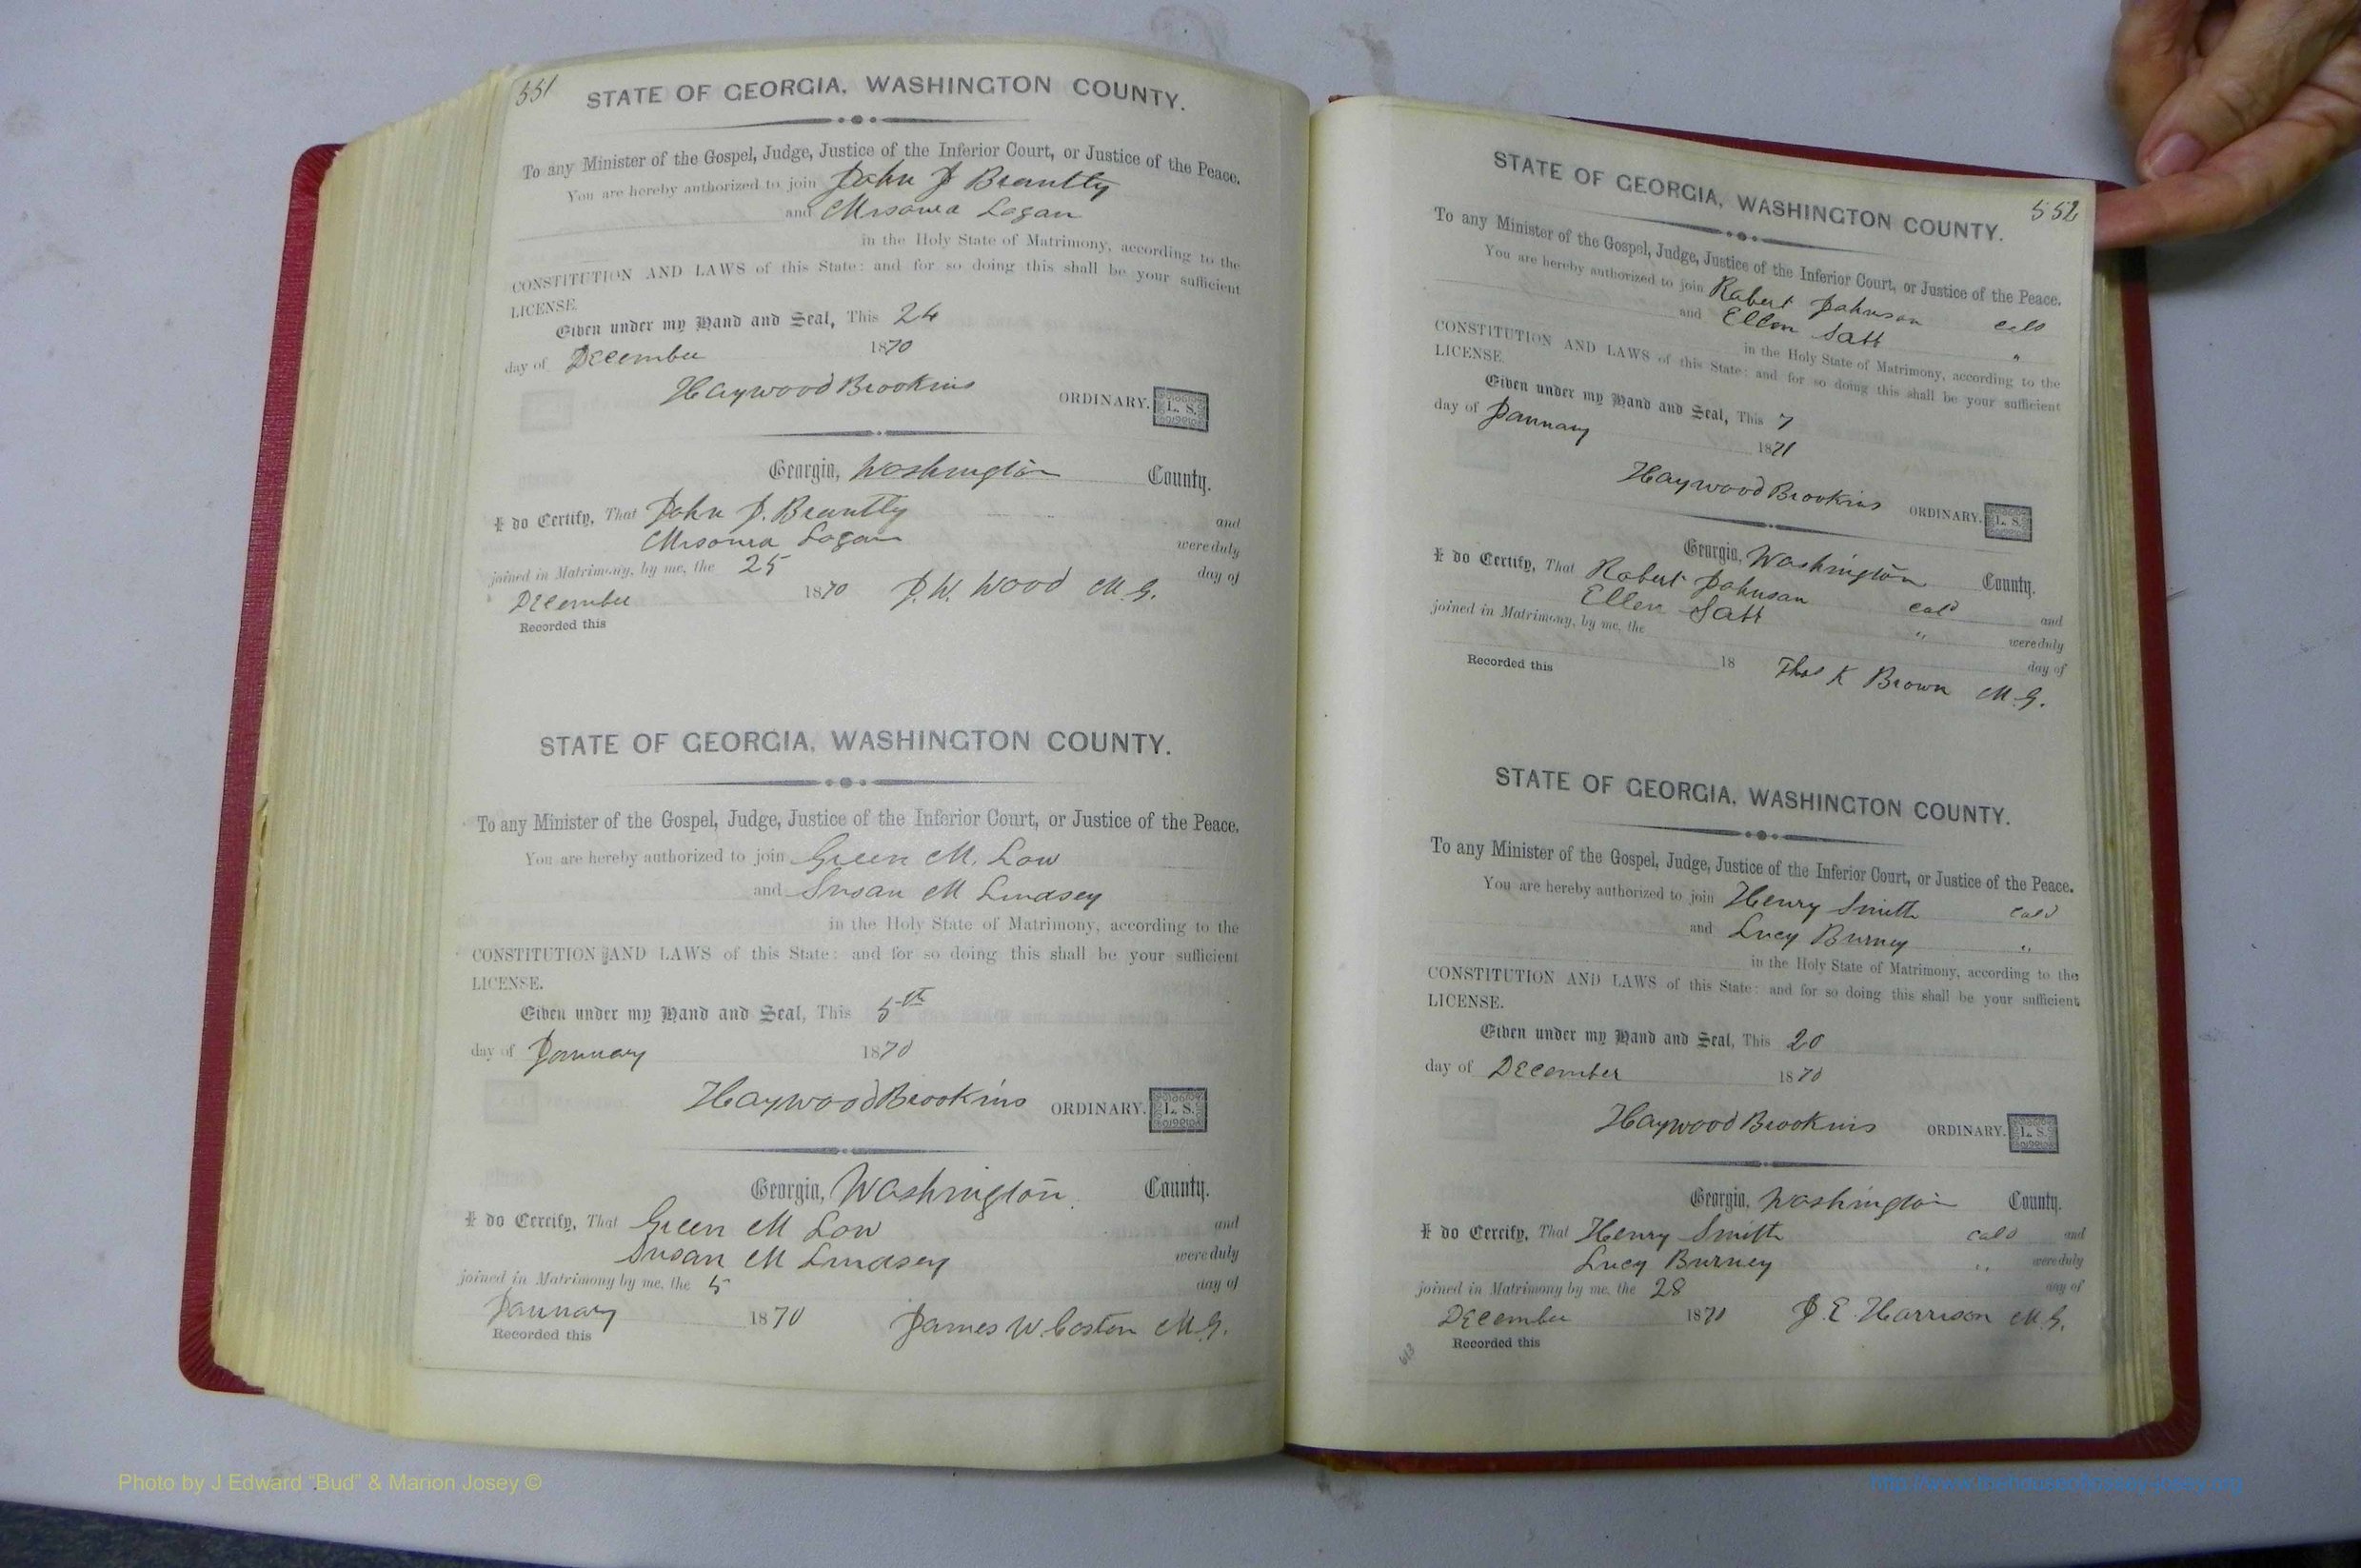 551
STATE OF GEORGIA, WASHINGTON COUNTY.
To any Minister of the Gospel, Judge, Justice of the Inferior Court, or Justice of the Peace.
You are hereby authorized to join John J Brantly
and Missouria Logan
in the Holy State of Matrimony, according to the
CONSTITUTION AND LAWS of this State: and for so doing this shall be your sufficient
LICENSE.
Given under my Hand and Seal, This 24
day of December 1870
Haywood Brookins ORDINARY. L. S.
Georgia, Washington County.
I do Certify, That John J. Brantly and
Logan were duly
joined in Matrimony, by me, the 25 day of
December 1870 J. W. Wood M. G.
Recorded this
STATE OF GEORGIA, WASHINGTON COUNTY.
To any Minister of the Gospel, Judge, Justice of the Inferior Court, or Justice of the Peace.
You are hereby authorized to join Green M. Low
and Susan M Lindsey
in the Holy State of Matrimony, according to the
CONSTITUTION AND LAWS of this State: and for so doing this shall be your sufficient
LICENSE.
Given under my Hand and Seal, This 5th
day of January 1870
Haywood Brookins ORDINARY. L. S.
Georgia, Washington County.
I do Certify, That Green M Low and
Susan M Lindsey were duly
joined in Matrimony by me, the 5 day of
January 1870 James W. Coston M.G.
Recorded this
552
STATE OF GEORGIA, WASHINGTON COUNTY.
To any Minister of the Gospel, Judge, Justice of the Inferior Court, or Justice of the Peace.
You are hereby authorized to join Robert Johnson cold
and Ellen "
in the Holy State of Matrimony, according to the
CONSTITUTION AND LAWS of this State: and for so doing this shall be your sufficient
LICENSE.
Given under my Hand and Seal, This 7
day of January 1871
Haywood Brookins ORDINARY. L. S.
Georgia, Washington County.
I do Certify, That Robert Johnson cold and
Ellen " were duly
joined in Matrimony, by me, the day of
18 Thos K Brown M. G.
Recorded this
STATE OF GEORGIA, WASHINGTON COUNTY.
To any Minister of the Gospel, Judge, Justice of the Inferior Court, or Justice of the Peace.
You are hereby authorized to join Henry Smith cold
and Lucy Burney "
in the Holy State of Matrimony, according to the
CONSTITUTION AND LAWS of this State: and for so doing this shall be your sufficient
LICENSE.
Given under my Hand and Seal, This 20
day of December 1870
Haywood Brookins ORDINARY. L. S.
Georgia, Washington County.
I do Certify, That Henry Smith cold and
Lucy Burney " were duly
joined in Matrimony by me, the 28 day of
December 1870 J. E. Harrison M. G.
Recorded this
613
Photo by J Edward "Bud" & Marion Josey ©